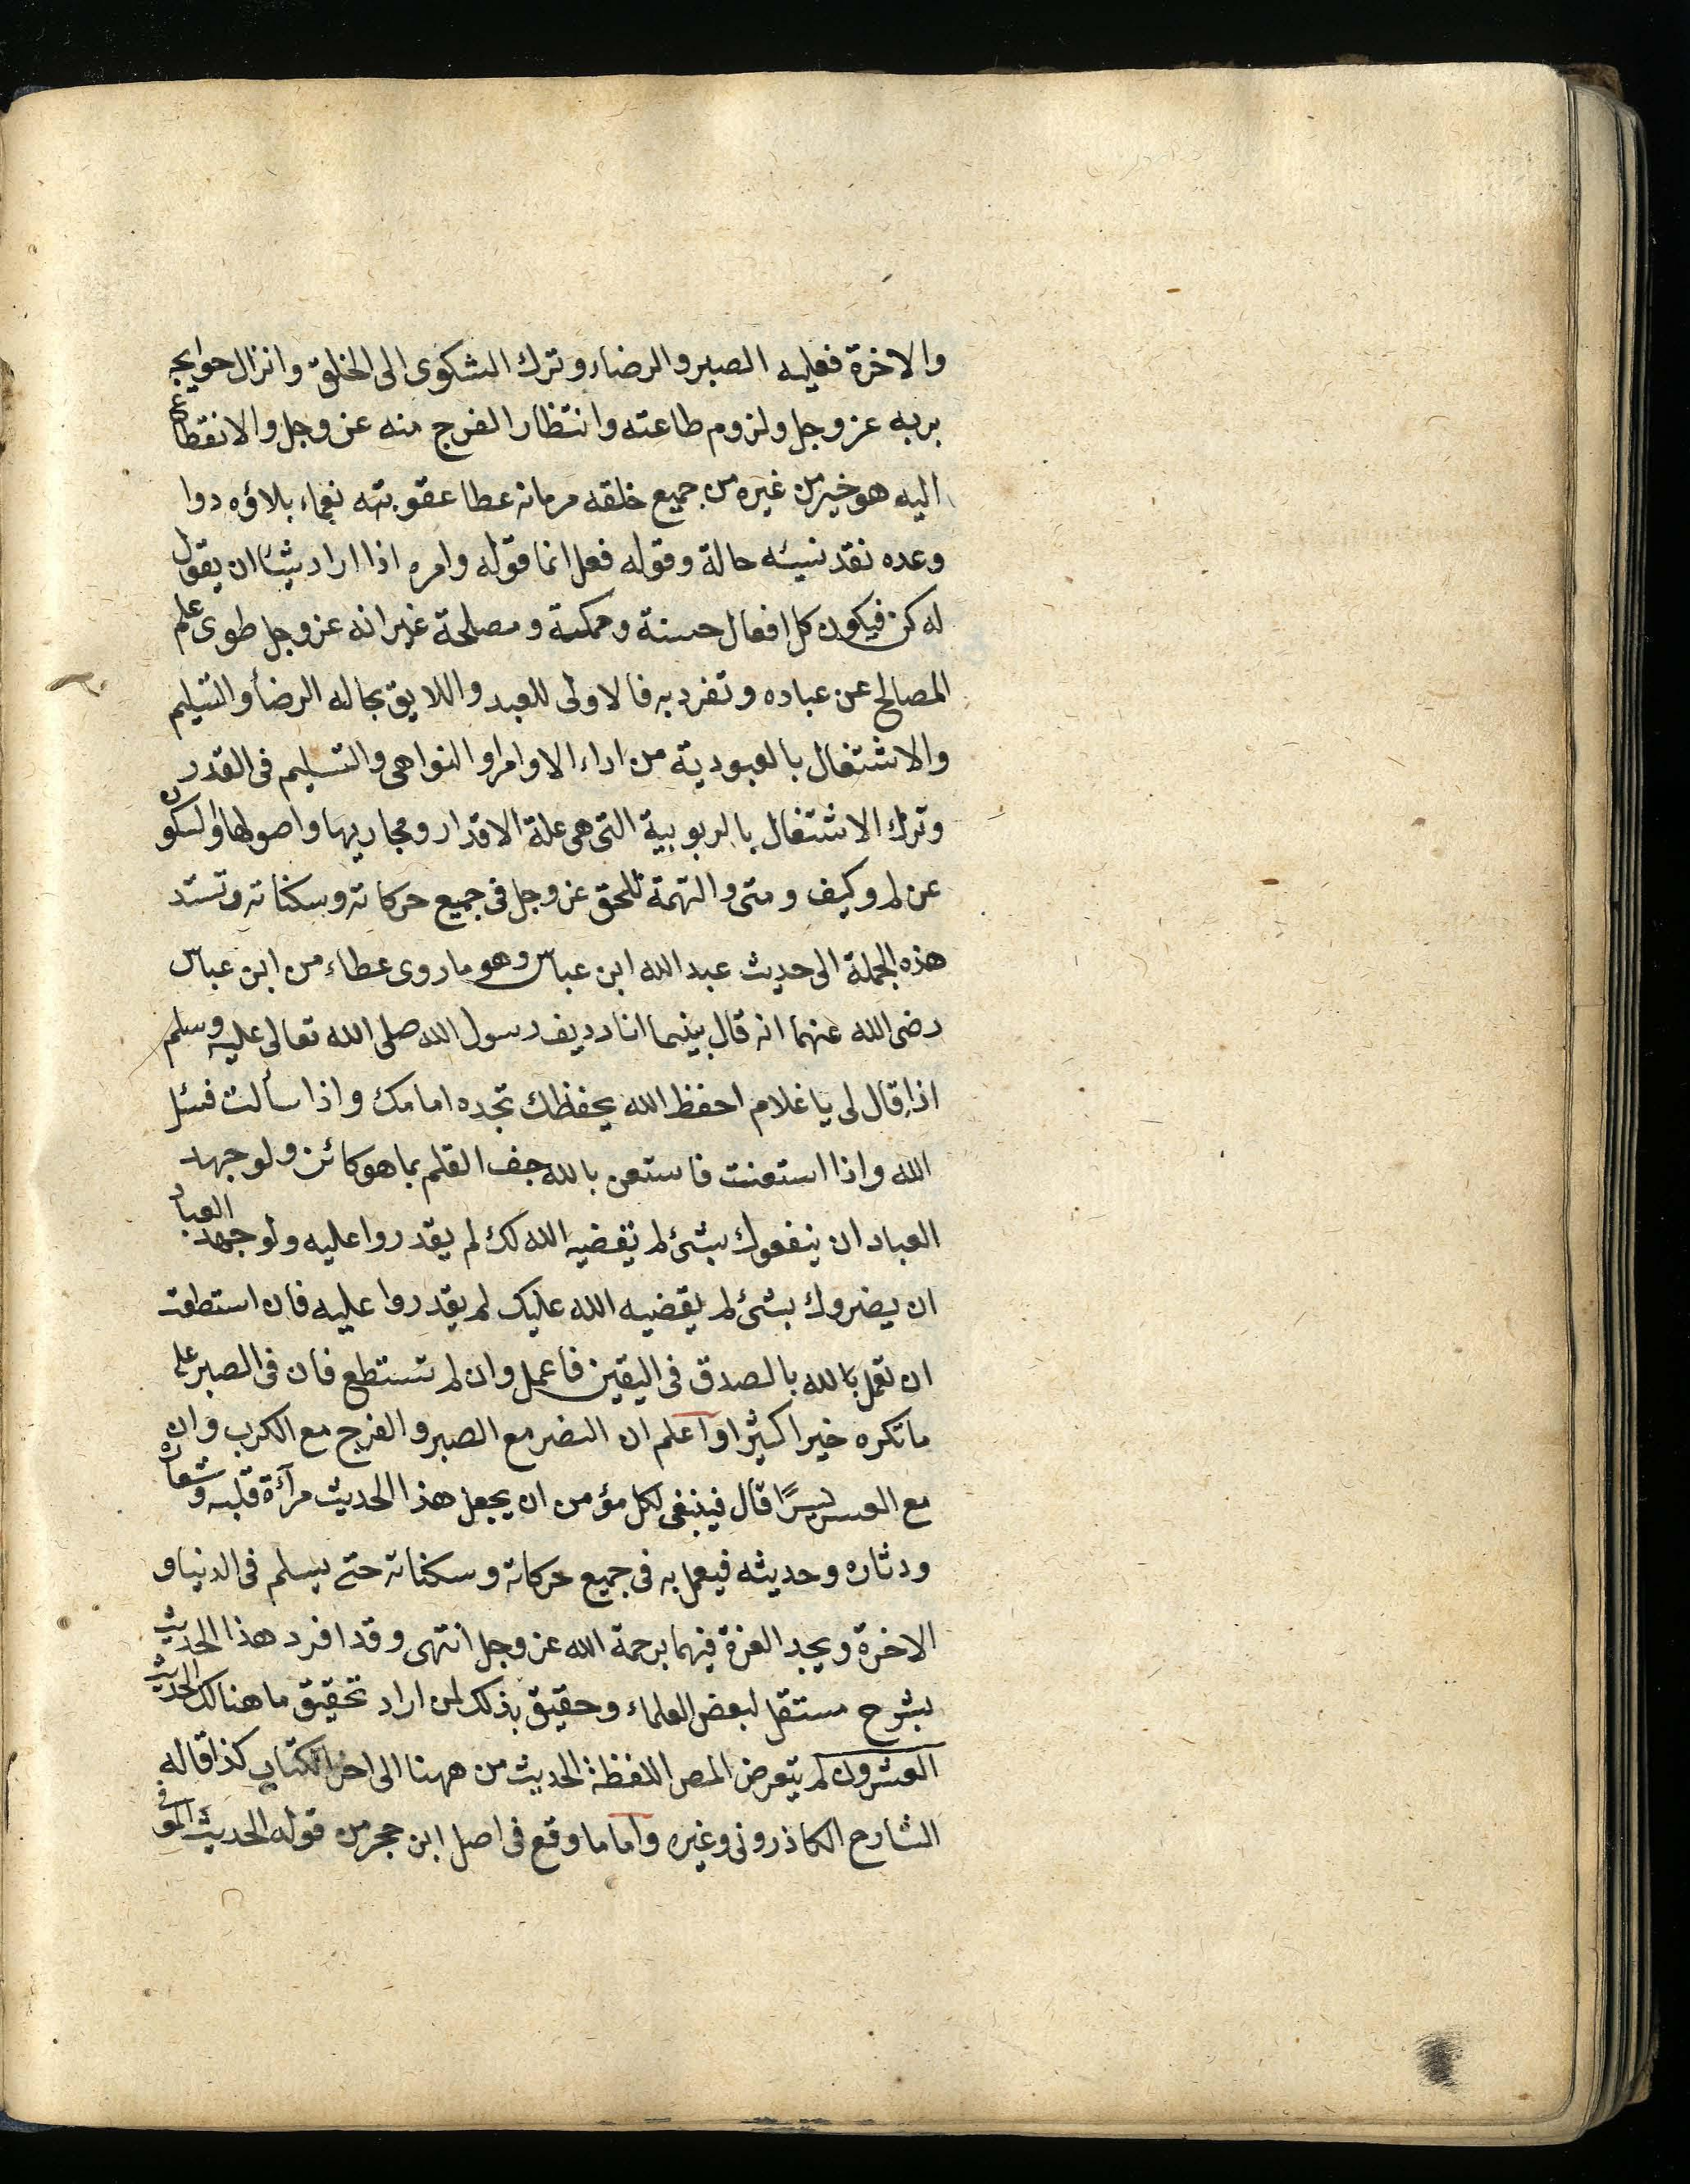 والاخرة فعليه الصبر والرضاء وترك الشكوى الى الخلق وانزال حوايجه
بربه عز وجل ولزوم طاعته وانتظار الفرج منه عز وجل والانقطاع
اليه هو خير من غيره من جميع خلقه حرمانه عطا عقوبته نعماء بلاؤه دوا
وعده نقد نسيئه حالة وقوله فعل انما قوله وامره اذا اراد شيئا ان يقول
له كن فيكون كل افعال حسنة وحكمة ومصلحة غير انه عز وجل طوى علم
المصالح عن عباده وتفرد به فالاولى للعبد واللايق بحاله الرضأ والتسليم
والاشتغال بالعبودية من اداء الاوامر والنواهى والتسليم فى القدر
وترك الاشتغال بالربوبية التى هى علة الاقدار ومجاريها واصولها والسكون
عن لم وكيف ومتى والتهمة للحق عز وجل فى جميع حركاته وسكناته وتستند
هذه الجملة الى حديث عبد الله ابن عباس وهو ما روى عطاء من ابن عباس
رضى الله عنهما انه قال بينما انا رديف رسول الله صلى الله تعالى عليه وسلم
اذا قال لى يا غلام احفظ الله يحفظك تجده امامك واذا سألت فسئل
الله واذا استعنت فاستعن بالله جف القلم بما هو كائن ولو جهد
العباد ان ينفعوك بشئ لم يقضيه الله لك لم يقدروا عليه ولو جهد العباد
ان يضروك بشئ لم يقضيه الله عليك لم يقدروا عليه فان استطعت
ان تعمل بالله بالصدق فى اليقين فاعمل وان لم تستطع فان فى الصبر على
ما تكره خيرا كثيرا واعلم ان النصر مع الصبر والفرج مع الكرب وان
مع العسر يسرًا قال فينبغى لكل مؤمن ان يجعل هذا الحديث مرآءة قلبه وشعاره
ودثاره وحديثه فيعمل به فى جميع حركاته وسكناته حتى يسلم فى الدنيا و
الاخرة ويجد العزة فيهما برحمة الله عز وجل انتهى وقد افرد هذا الحديث
بشرح مستقل لبعض العلماء وحقيق بذلك لمن اراد تحقيق ما هنالك الحديث
العشرون لم يتعرض المص اللفظة الحديث من ههنا الى اخر الكتاب كذا قاله
الشارح الكاذرونى وغيره واما ما وقع فى اصل ابن حجر من قوله الحديث الموفى